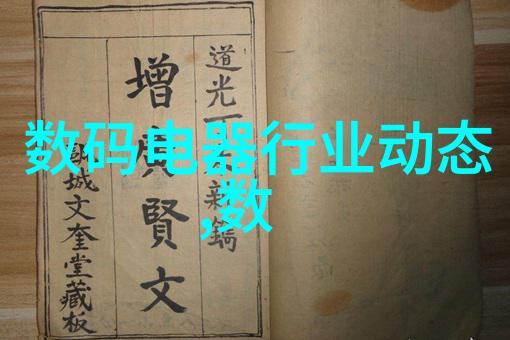 数码电器行业动态
,数
道光
新鐫
增廣賢文
城文奎堂藏板